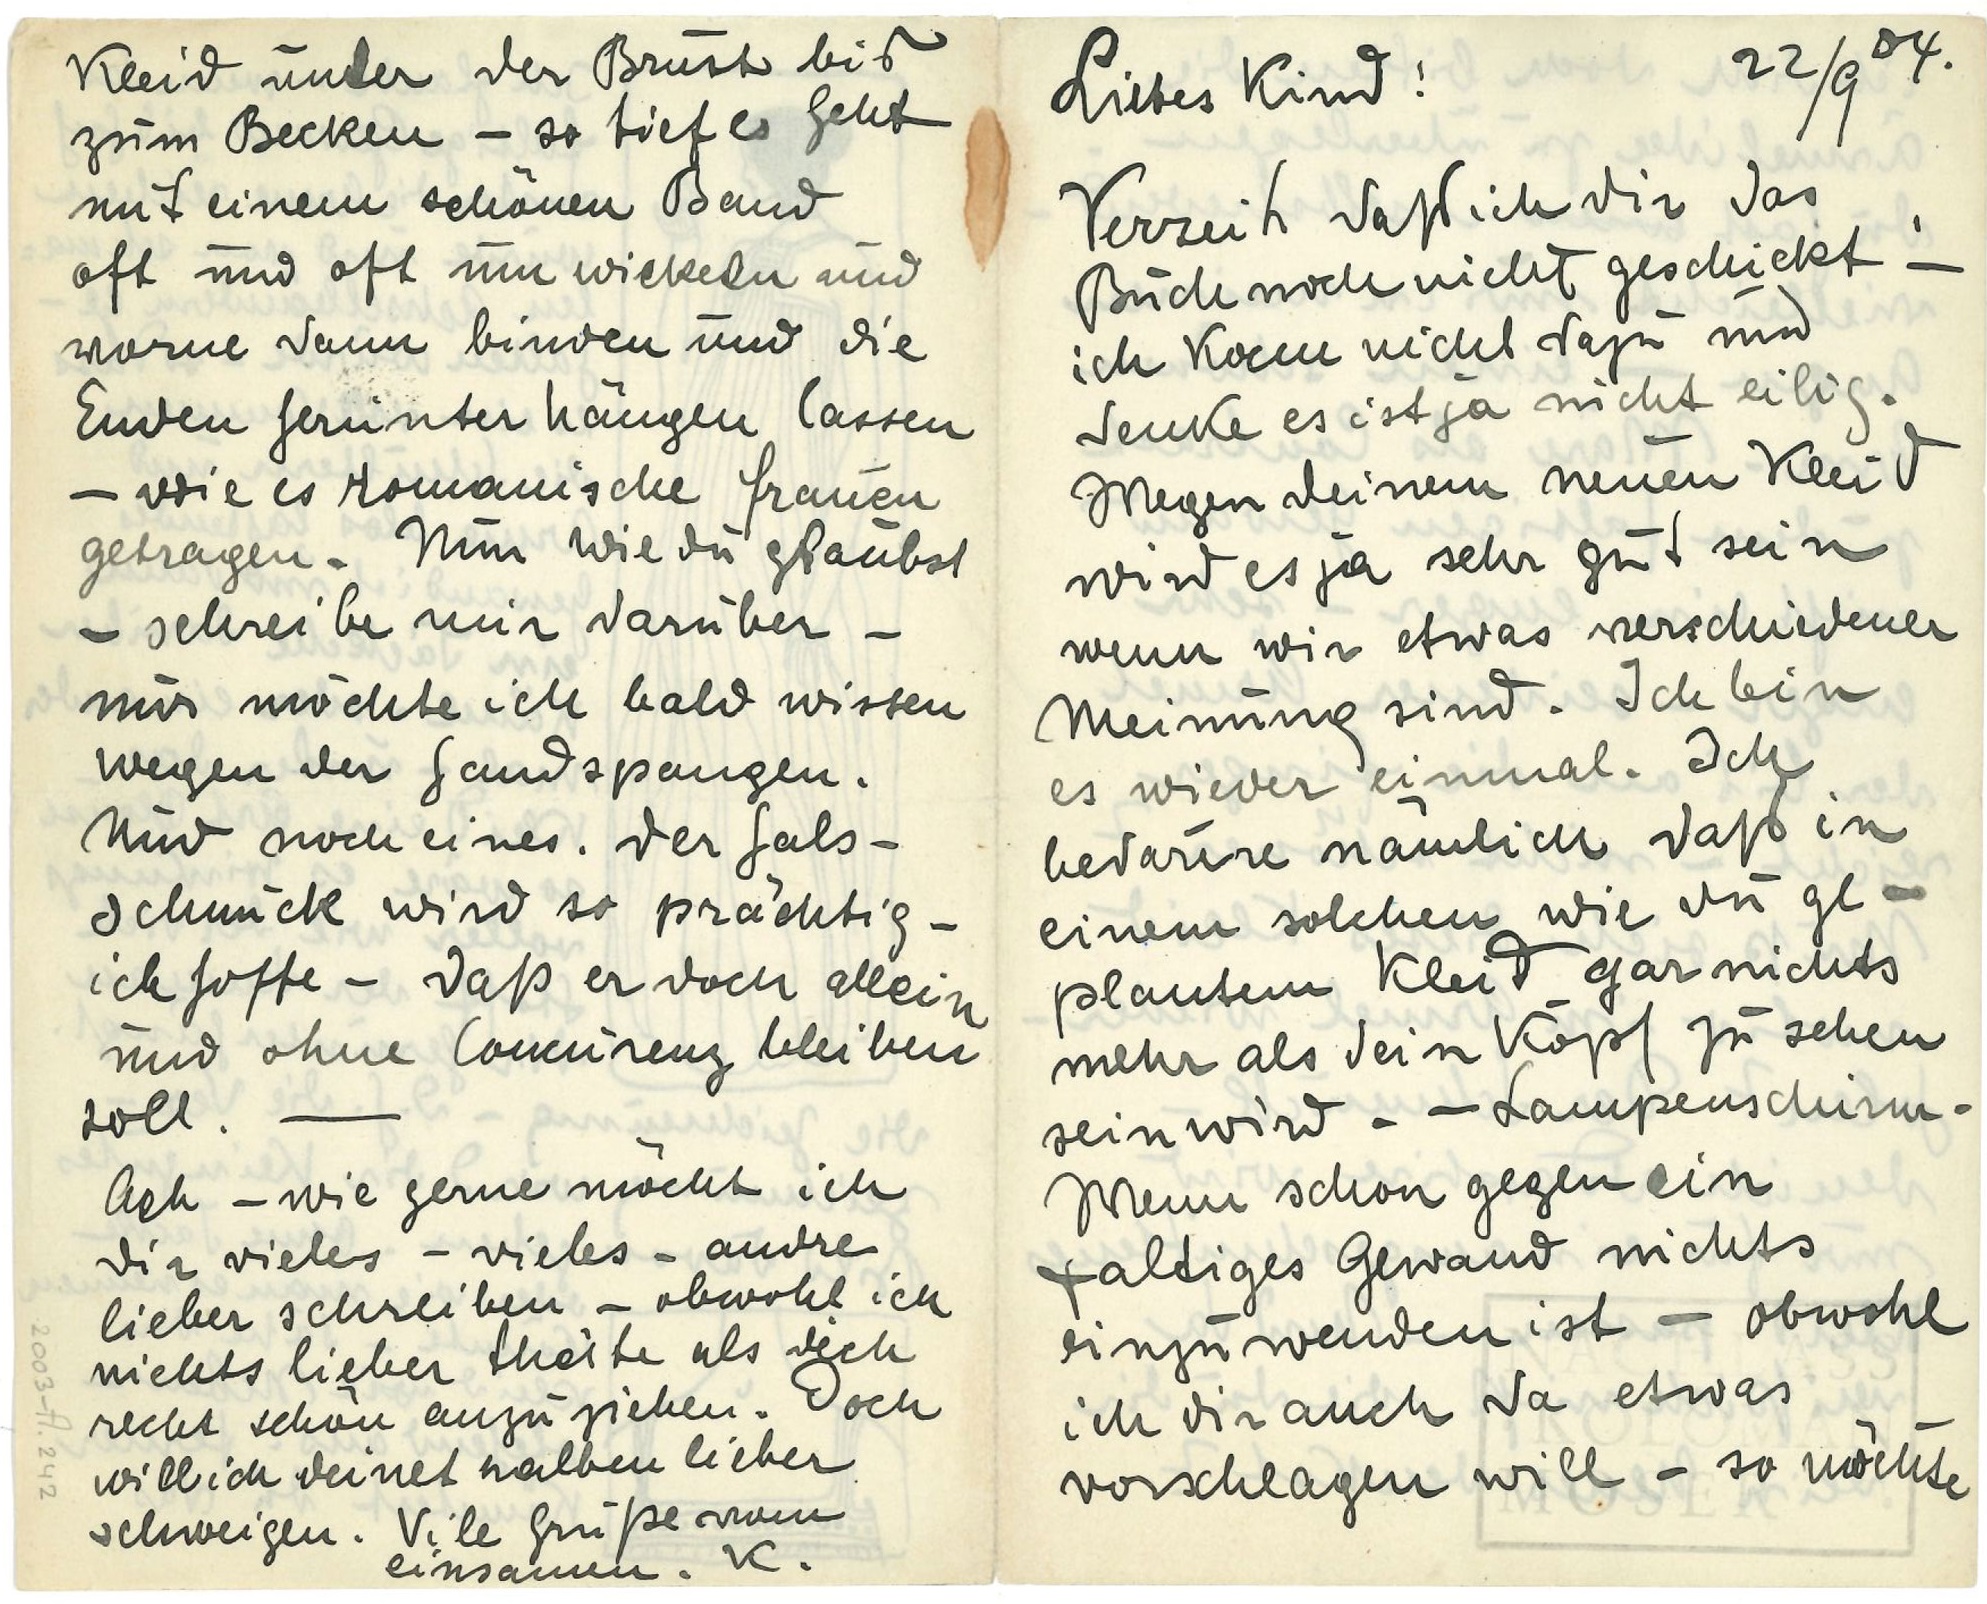 22/9 04.
Liebes Kind!
Verzeih daß ich dir das
Buch noch nicht geschickt –
ich kom nicht dazu und
denke es ist ja nicht eilig.
Wegen deinem neuen Kleid
wird es ja sehr gut sein
wenn wir etwas verschiedener
Meinung sind. Ich bin
es wieder einmal. Ich
bedaure nämlich daß in
einem solchen wie du ge-
plantem Kleid gar nichts
mehr als dein Kopf zu sehen
sein wird. – Lampenschirm.
Wenn schon gegen ein
faltiges Gewand nichts
einzuwenden ist – obwohl
ich dir auch da etwas
vorschlagen will – so möchte
Kleid unter der Brust bis
zum Becken – so tief es geht
mit einem schönen Band
oft und oft umwickeln und
vorne dann binden und die
Enden herunter hängen lassen
– wie es romanische Frauen
getragen. Nun wie du glaubst
– schreibe mir darüber –
nur möchte ich bald wissen
wegen der Handspangen.
Und noch eines. der Hals-
schmuck wird so prächtig –
ich hoffe – daß er doch allein
und ohne Concurenz bleiben
soll. —
Ach – wie gerne möcht ich
dir vieles – vieles – andre
lieber schreiben – obwohl ich
nichts lieber thäte als dich
recht schön anzuziehen. Doch
will ich deinethalben lieber
schweigen. Vile Grüße vom
einsamen. K.
2003-A.242
MOSER